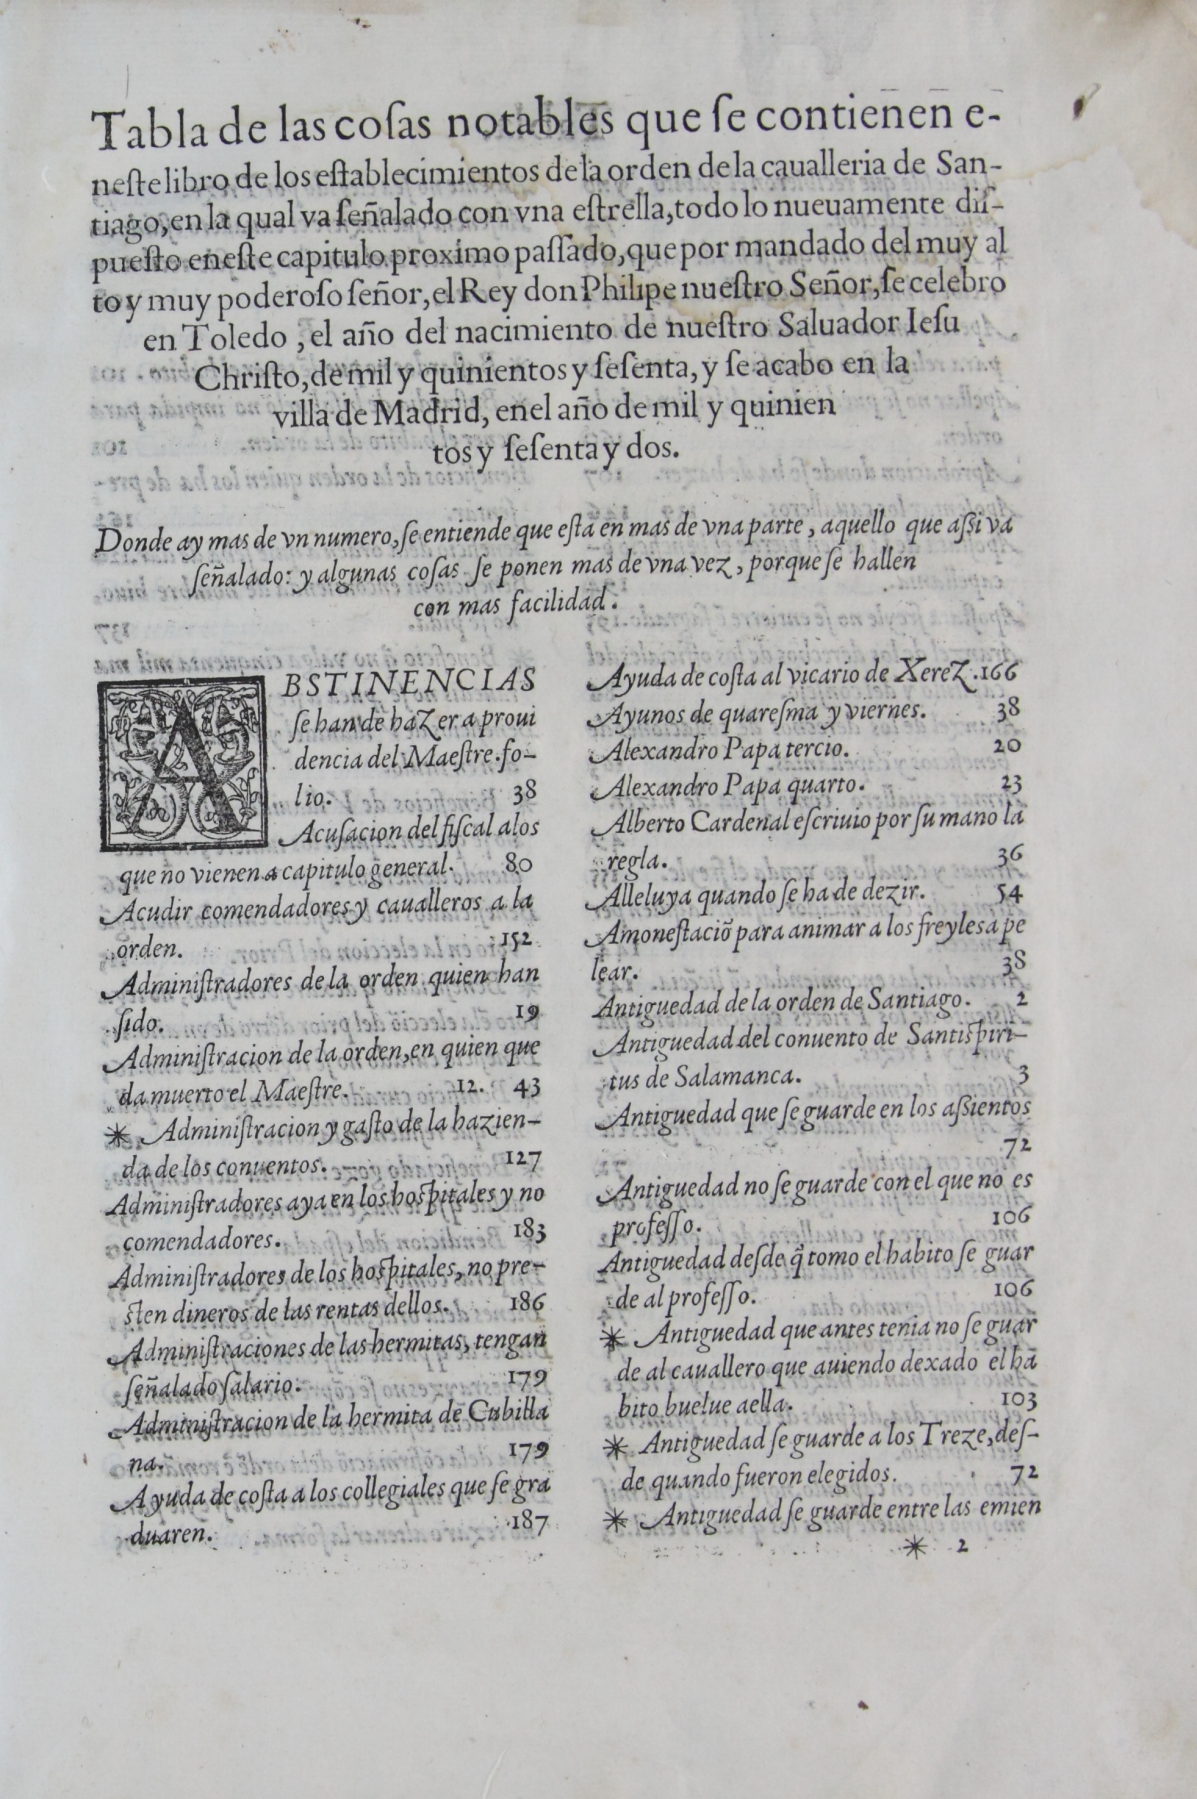 Tabla de las coſas notables que ſe contienen e-
neſte libro de los eſtablecimientos de la orden de la caualleria de San-
tiago, en la qual va ſeñalado con vna eſtrella, todo lo nueuamente diſ-
pueſto eneſte capitulo proximo paſſado, que por mandado del muy al
to y muy poderoſo ſeñor, el Rey don Philipe nueſtro Señor, ſe celebro
en Toledo, el año del nacimiento de nueſtro Saluador Ieſu
Chriſto, de mil y quinientos y ſeſenta, y ſe acabo en la
villa de Madrid, enel año de mil y quinien
tos y ſeſenta y dos.
Donde ay mas de vn numero, ſe entiende que eſta en mas de vna parte, aquello que aſsi va
ſeñalado: y algunas coſas ſe ponen mas de vna vez, porque ſe hallen
con mas facilidad.
ABSTINENCIAS
ſe han de hazer a proui
dencia del Maeſtre. fo-
lio. 38
Acuſacion del fiſcal a los
que no vienen a capitulo general. 80
Acudir comendadores y caualleros a la
orden. 152
Adminiſtradores de la orden quien han
ſido. 19
Adminiſtracion de la orden, en quien que
da muerto el Maeſtre. 12. 43
* Adminiſtracion y gaſto de la hazien-
da de los conuentos. 127
Adminiſtradores aya en los hoſpitales y no
comendadores. 183
Adminiſtradores de los hoſpitales, no pre-
ſten dineros de las rentas dellos. 186
Adminiſtraciones de las hermitas, tengan
ſeñalado ſalario. 179
Adminiſtracion de la hermita de Cubilla
na. 179
Ayuda de coſta a los collegiales que ſe gra
duaren. 187
Ayuda de coſta al vicario de Xerez. 166
Ayunos de quareſma y viernes. 38
Alexandro Papa tercio. 20
Alexandro Papa quarto. 23
Alberto Cardenal eſcriuio por ſu mano la
regla. 36
Alleluya quando ſe ha de dezir. 54
Amoneſtaciõ para animar a los freyles a pe
lear. 38
Antiguedad de la orden de Santiago. 2
Antiguedad del conuento de Santiſpiri-
tus de Salamanca. 3
Antiguedad que ſe guarde en los aſsientos
72
Antiguedad no ſe guarde con el que no es
profeſſo. 106
Antiguedad deſde q̃ tomo el habito ſe guar
de al profeſſo. 106
* Antiguedad que antes tenia no ſe guar
de al cauallero que auiendo dexado el ha
bito buelue a ella. 103
* Antiguedad ſe guarde a los Treze, deſ-
de quando fueron elegidos. 72
* Antiguedad ſe guarde entre las emien
* 2